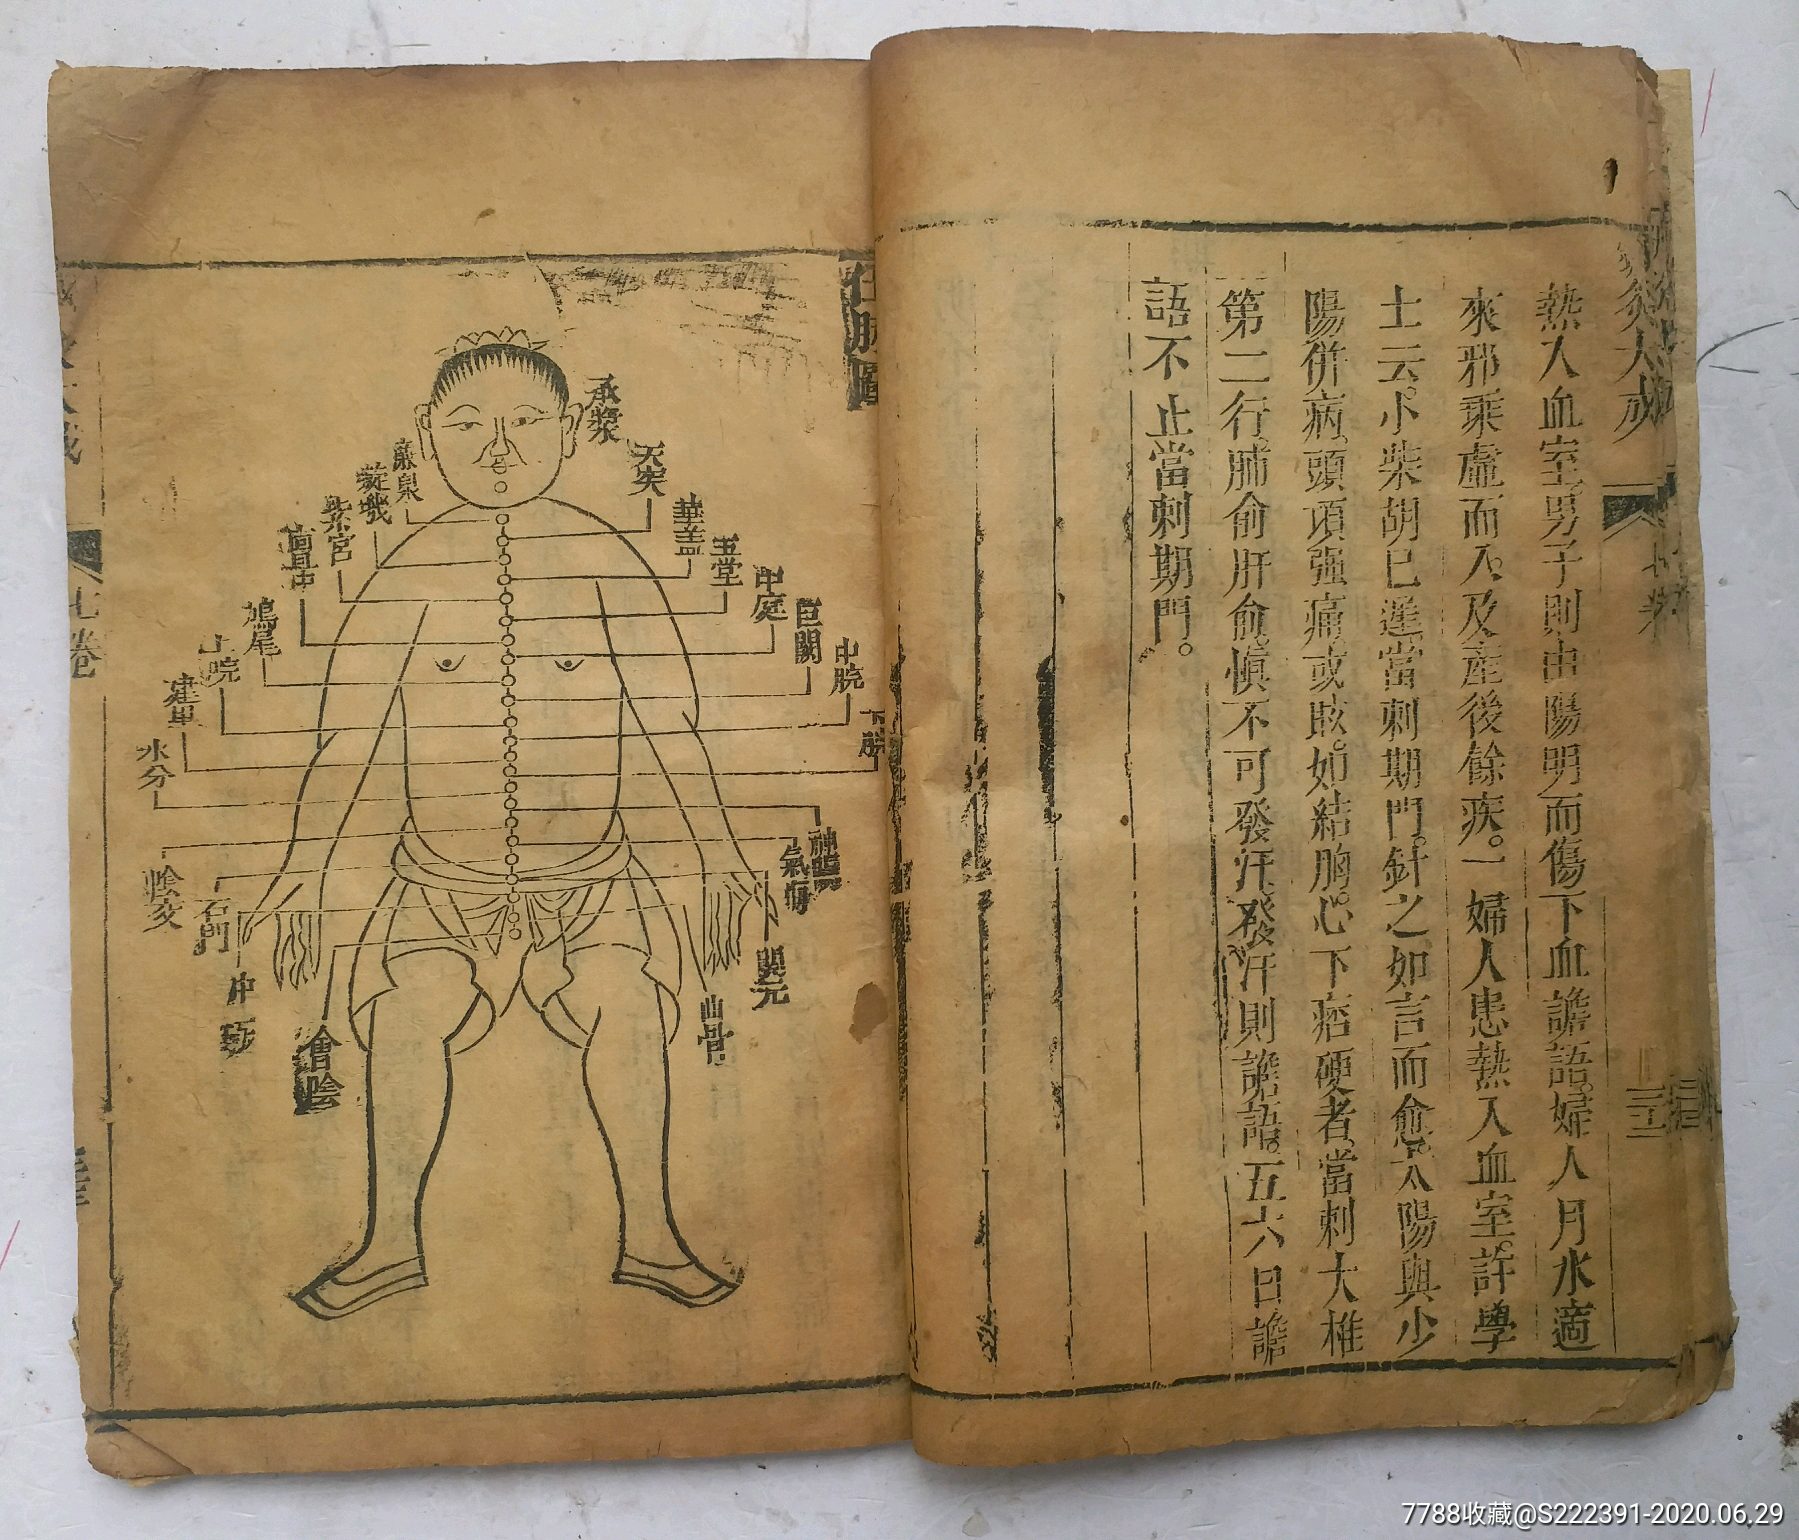 灸大成
熱入血室男子則由陽明而傷下血譫語婦人月水適
來邪乘虛而入及產後餘疾。一婦人患熱入血室許學
士云小柴胡已遲當刺期門針之如言而愈太陽與少
陽併病頭項强痛或眩如結胸心下痞硬者當刺大椎
第二行肺俞肝俞慎不可發汗發汗則譫語五六日譫
語不止當刺期門。
任脉圖
承漿
天突
華蓋
玉堂
中庭
巨闕
中脘
下脘
神闕
氣海
關元
曲骨
廉泉
璇璣
紫宮
膻中
鳩尾
上脘
建里
水分
陰交
石門
中
會陰
七卷
7788收藏@S222391-2020.06.29